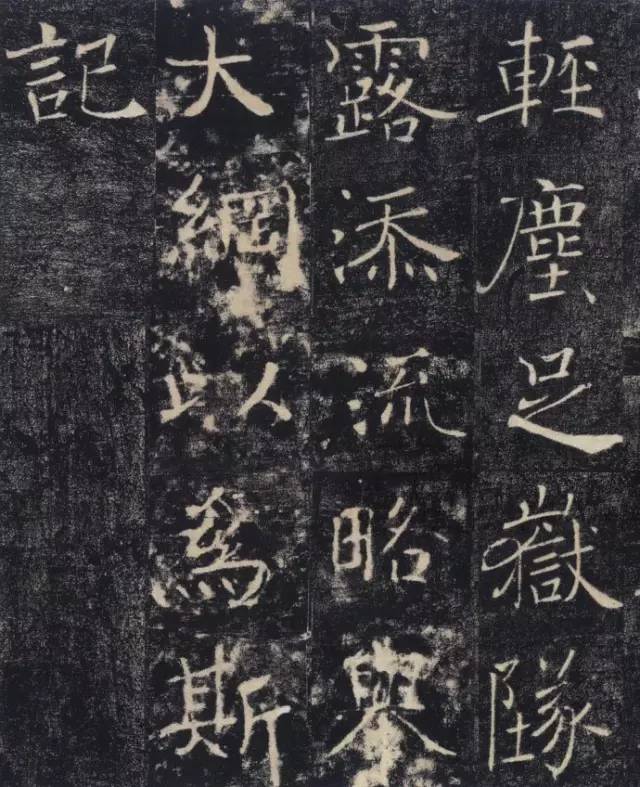 輕塵足嶽墜
露添流略舉
大綱以爲斯
記